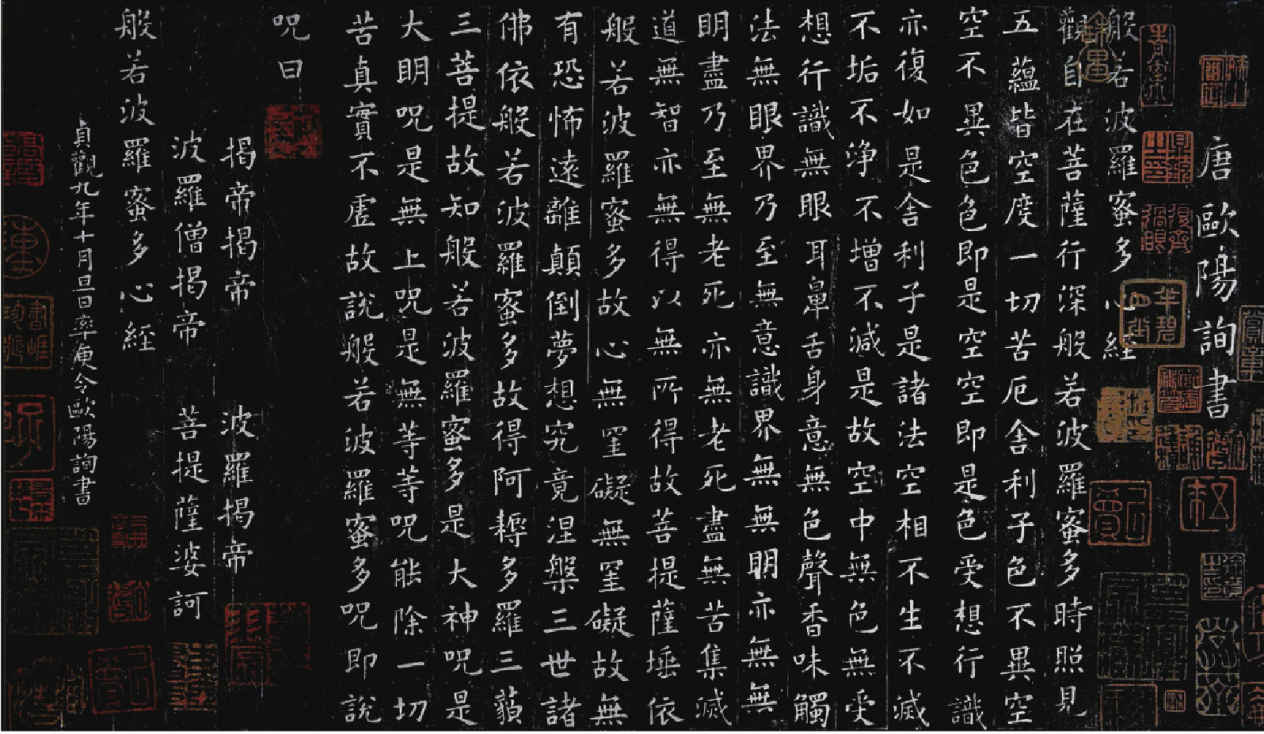 唐歐陽詢書
般若波羅蜜多心経
觀自在菩薩行深般若波羅蜜多時照見
五蘊皆空度一切苦厄舍利子色不異空
空不異色色即是空空即是色受想行識
亦復如是舍利子是諸法空相不生不滅
不垢不淨不增不減是故空中無色無受
想行識無眼耳鼻舌身意無色聲香味觸
法無眼界乃至無意識界無無明亦無無
明盡乃至無老死亦無老死盡無苦集滅
道無智亦無得以無所得故菩提薩埵依
般若波羅蜜多故心無罣礙無罣礙故無
有恐怖遠離顛倒夢想究竟涅槃三世諸
佛依般若波羅蜜多故得阿耨多羅三藐
三菩提故知般若波羅蜜多是大神呪是
大明呪是無上呪是無等等呪能除一切
苦真實不虛故說般若波羅蜜多呪即說
呪曰
揭帝揭帝 波羅揭帝
波羅僧揭帝 菩提薩婆訶
般若波羅蜜多心経
貞觀九年十月旦日率更令歐陽詢書